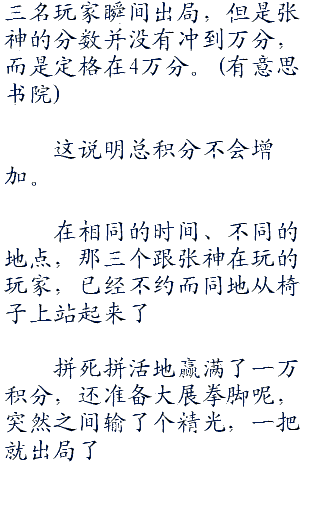 三名玩家瞬间出局，但是张
神的分数并没有冲到万分，
而是定格在4万分。(有意思
书院)
这说明总积分不会增
加。
在相同的时间、不同的
地点，那三个跟张神在玩的
玩家，已经不约而同地从椅
子上站起来了
拼死拼活地赢满了一万
积分，还准备大展拳脚呢，
突然之间输了个精光，一把
就出局了